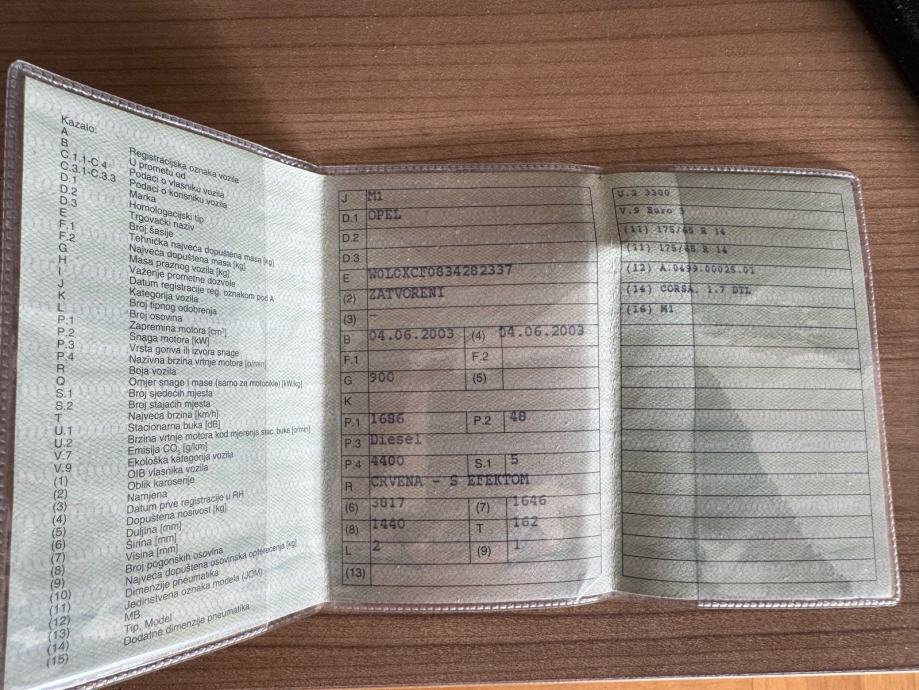 Kazalo:
A Registracijska oznaka vozila
B U prometu od
C.1.1-C.4 Podaci o vlasniku vozila
C.3.1-C.3.3 Podaci o korisniku vozila
D.1 Marka
D.2 Homologacijski tip
D.3 Trgovački naziv
E Broj šasije
F.1 Tehnička najveća dopuštena masa [kg]
F.2 Najveća dopuštena masa [kg]
G Masa praznog vozila [kg]
H Važenje prometne dozvole
I Datum registracije reg. oznakom pod A
J Kategorija vozila
K Broj tipnog odobrenja
L Broj osovina
P.1 Zapremina motora [cm³]
P.2 Snaga motora [kW]
P.3 Vrsta goriva ili izvora snage
P.4 Nazivna brzina vrtnje motora [o/min]
R Boja vozila
Q Omjer snage i mase (samo za motocikle) [kW/kg]
S.1 Broj sjedećih mjesta
S.2 Broj stajaćih mjesta
T Najveća brzina [km/h]
U.1 Stacionarna buka [dB]
U.2 Brzina vrtnje motora kod mjerenja stac. buke [o/min]
V.7 Emisija CO₂ [g/km]
V.9 Ekološka kategorija vozila
(1) OIB vlasnika vozila
(2) Oblik karoserije
(3) Namjena
(4) Datum prve registracije u RH
(5) Dopuštena nosivost [kg]
(6) Duljina [mm]
(7) Širina [mm]
(8) Visina [mm]
(9) Broj pogonskih osovina
(10) Najveća dopuštena osovinska opterećenja [kg]
(11) Dimenzije pneumatika
(12) Jedinstvena oznaka modela (JOM)
(13) MB
(14) Tip, Model
(15) Dodatne dimenzije pneumatika
J M1
D.1 OPEL
D.2
D.3
E W0L0XCF0834282337
(2) ZATVORENI
(3) -
B 04.06.2003 (4) 04.06.2003
F.1 F.2
G 900 (5)
K
P.1 1686 P.2 48
P.3 Diesel
P.4 4400 S.1 5
R CRVENA - S EFEKTOM
(6) 3817 (7) 1646
(8) 1440 T 162
L 2 (9) 1
(13)
U.2 3300
V.9 Euro 3
(11) 175/65 R 14
(11) 175/65 R 14
(12) A.0499.00025.01
(14) CORSA. 1.7 DTL
(16) M1